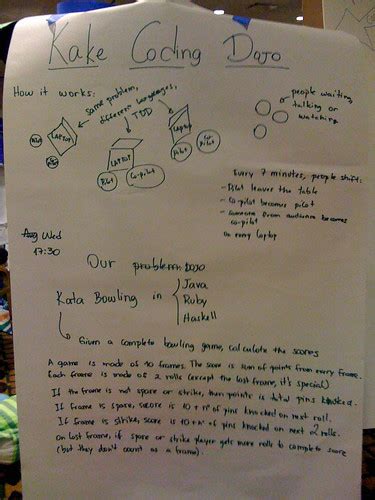 Kake Coding Dojo
How it works:
same problem,
different languages,
TDD
people waiting,
talking or
watching
LAPTOP
LAPTOP
LAPTOP
Pilot
Co-pilot
Pilot
Co-Pilot
Every 7 minutes, people shift:
- Pilot leaves the table
- Co-pilot becomes pilot
- someone from audience becomes
co-pilot
on every laptop
Aug Wed
17:30
Our problem: DOJO
Kata Bowling in
Java
Ruby
Haskell
Given a complete bowling game, calculate the scores
A game is made of 10 frames. The score is sum of points from every frame.
Each frame is made of 2 rolls (except the last frame, it's special)
If the frame is not spare or strike, then points is total pins knocked.
If frame is spare, score is 10 + nº of pins knocked on next roll.
If frame is strike, score is 10 + nº of pins knocked on next 2 rolls.
On last frame, if spare or strike player gets more rolls to complete score
(but they don't count as a frame).